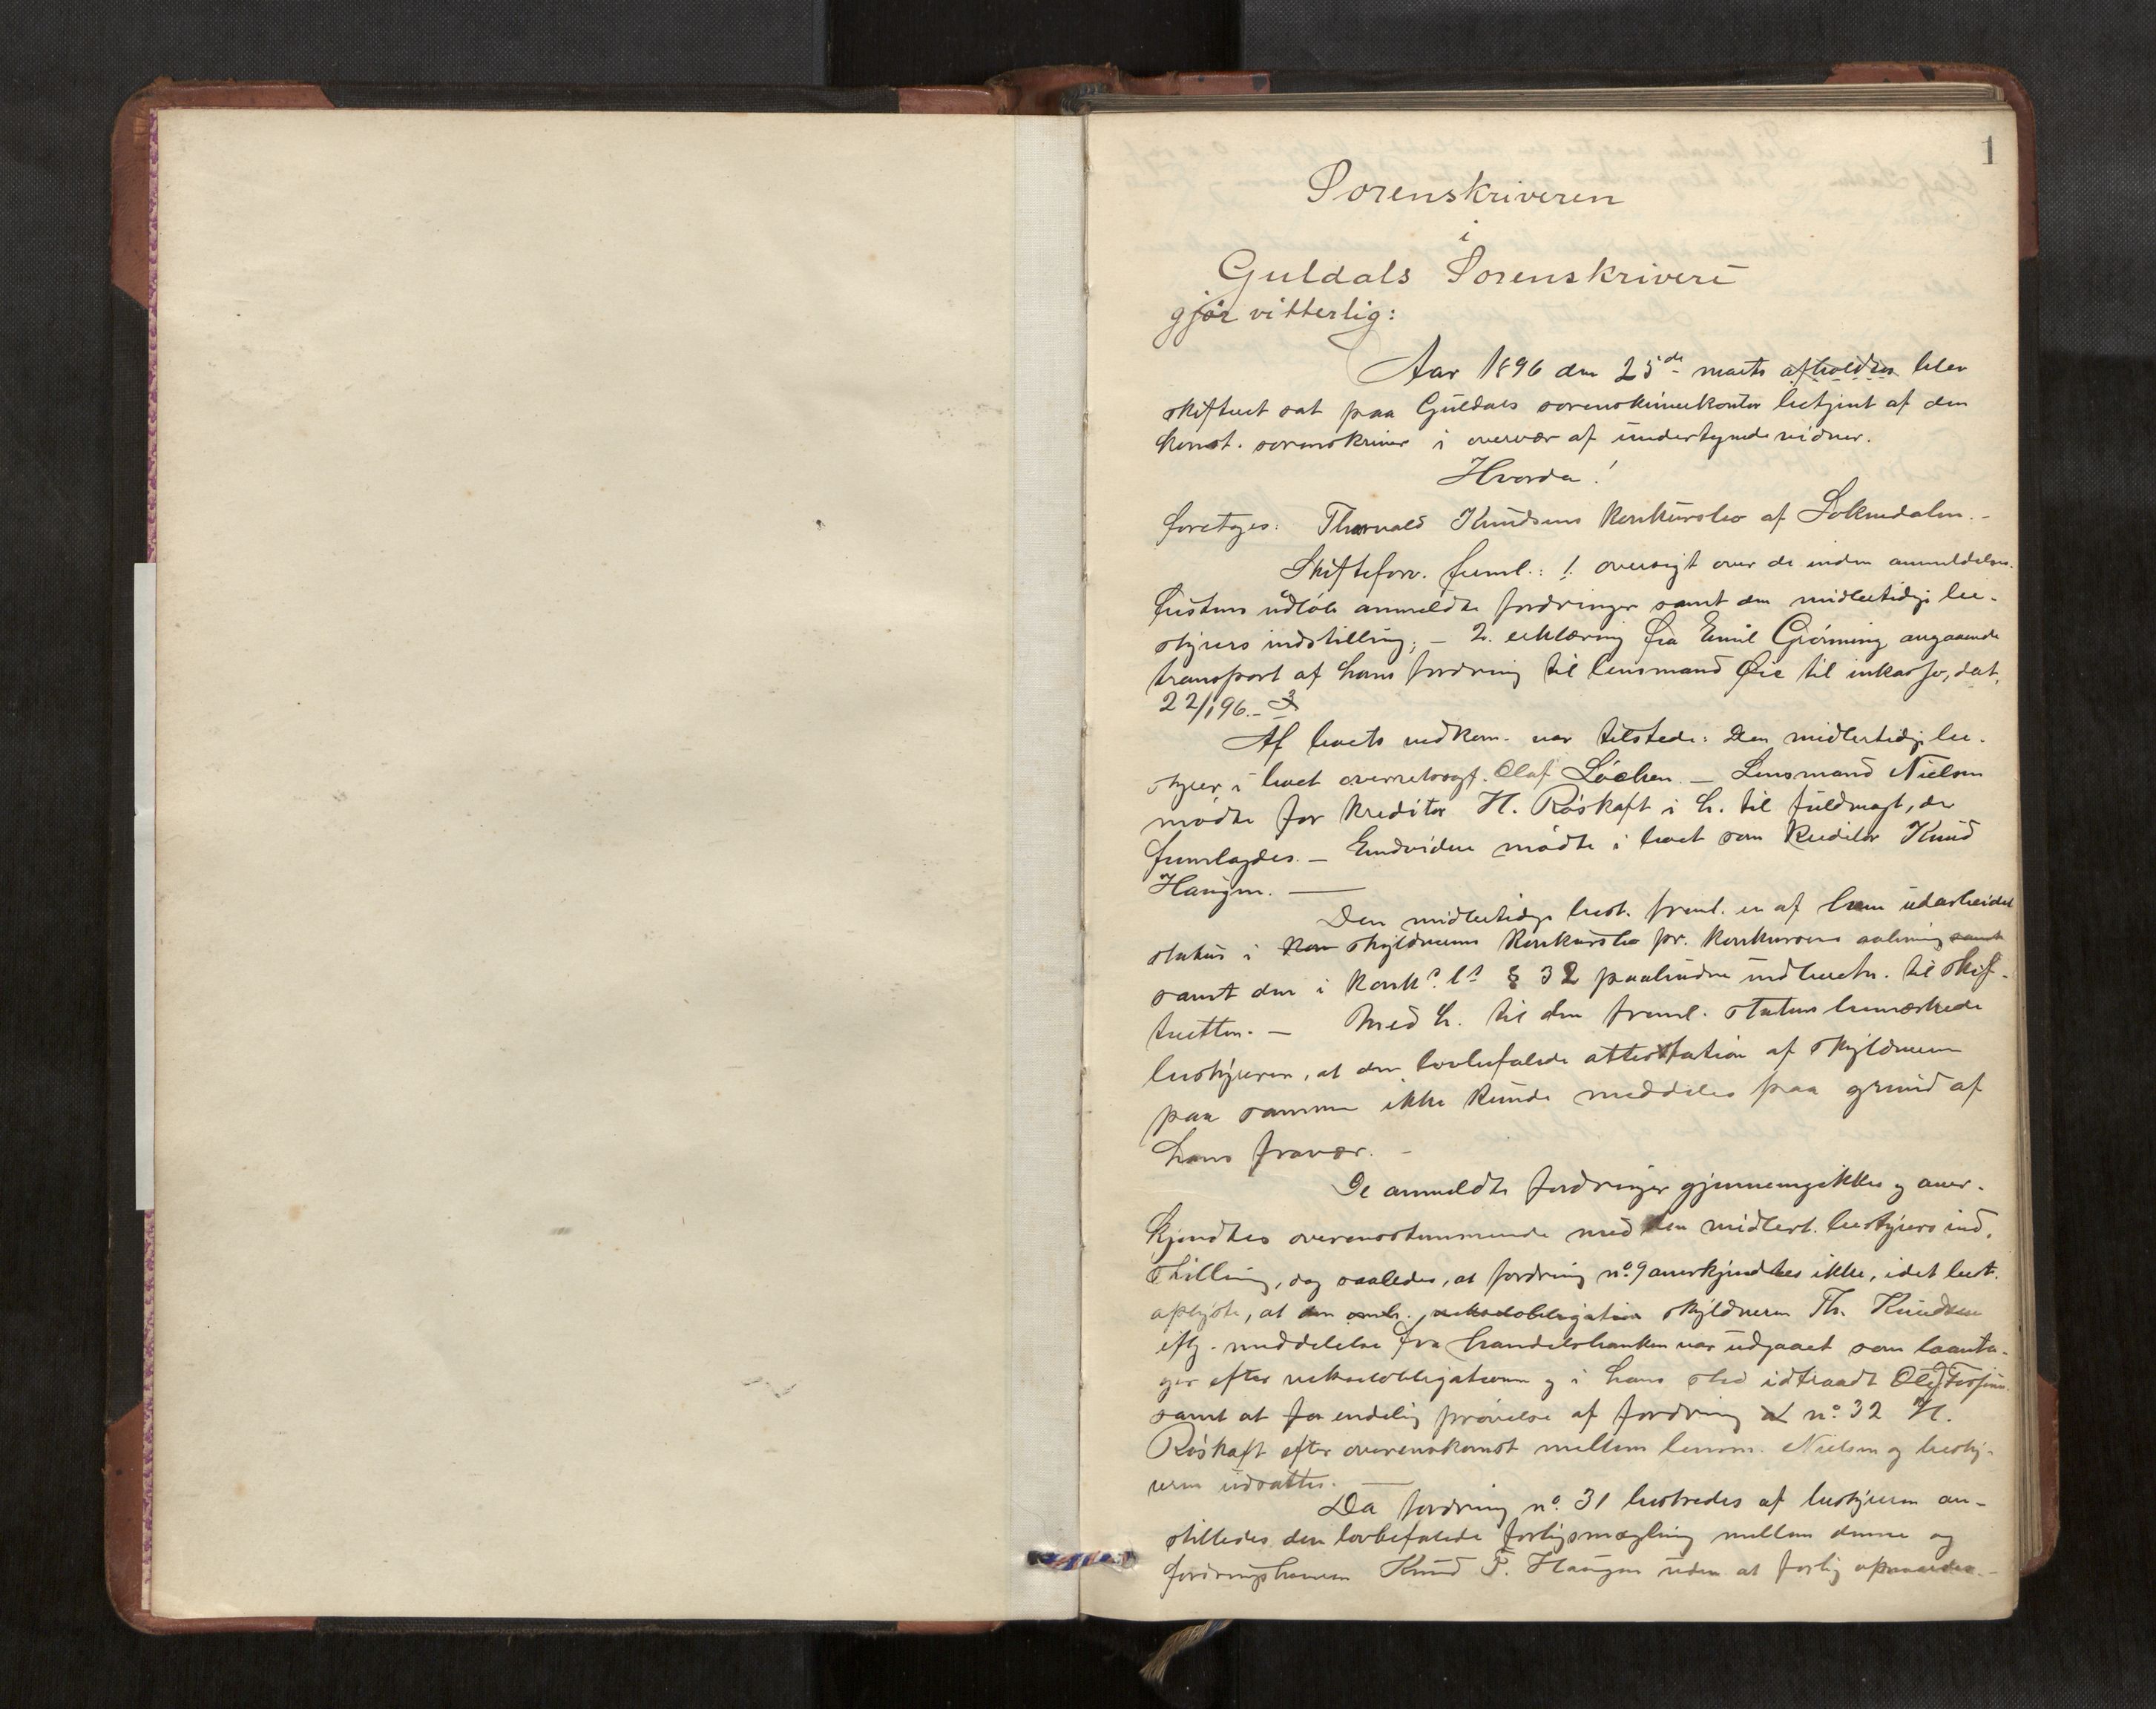 1
Sorenskriveren
i
Guldals Sorenskriveri
gjør vitterlig:
Aar 1896 den 25de marts afholdtes blev
skifteret sat paa Guldals sorenskriverkontor betjent af den
konst. sorenskriver i overvær af undertegnede vidner.
Hvorda!
foretoges: Thorvald Knudsens konkursbo af Soknedalen.-
Skifteforv. freml.: 1. oversigt over de inden anmeldelses-
fristens udløb anmeldte fordringer samt den midlertidige be-
styrers indstilling; - 2. erklæring fra Emil Grönning angaaende
transport af hans fordring til lensmand Øie til inkasso, dat.
22/1 96. - 3
Af boets vedkom. var tilstede: Den midlertidige be-
styrer i boet overretssagf. Olaf Löchen. - Lensmand Nielsen
mødte for kreditor H. Röskaft i h. til fuldmagt, der
fremlagdes. - Endvidere mødte i boet som kreditor Knud
Haugen. -
Den midlertidige best. freml. en af ham udarbeidet
status i kon skyldnerens konkursbo pr. konkursens aabning samt
samt den i konk.s l.s § 32 paabudne indberetn. til skif-
teretten. - Med h. til den freml. status bemærkede
bestyreren, at den lovbefalede attestation af skyldneren
paa samme ikke kunde meddeles paa grund af
hans fravær. -
De anmeldte fordringer gjennemgikkes og aner-
kjendtes overensstemmende med den midlert. bestyrers ind-
stilling, dog saaledes, at fordring no. 9 anerkjendtes ikke, idet best.
oplyste, at den omh. vekselobligation skyldneren Th. Knudsen
iflg. meddelelse fra handelsbanken var udgaaet som laanta-
ger efter vekselobligationen og i hans sted idtraadt
samt at for endelig prøvelse af fordring no. 32 H.
Röskaft efter overenskomst mellem lensm. Nielsen og besty-
reren udsattes. -
Da fordring no. 31 bestredes af bestyreren an-
stilledes den lovbefalede forligsmægling mellem denne og
fordringshaveren Knud T. Haugen uden at forlig opnaaedes. -